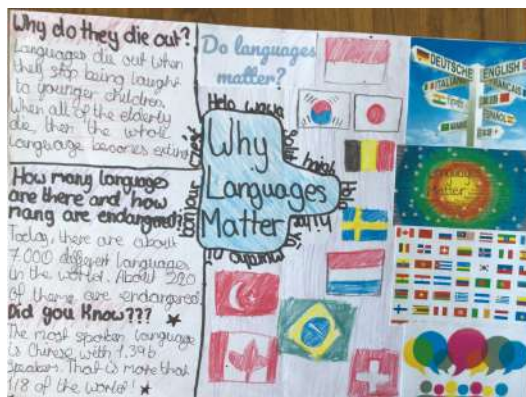 Why do they die out?
Languages die out when
they stop being taught
to younger children.
When all of the elderly
die, then the whole
Language becomes extinct
How many languages
are there and how
many are endangered?
Today, there are about
7,000 different languages
in the world. About
of theme are endangered.
Did you Know???
The most spoken language
is Chinese with 1.39b
speakers. That is more than
1/8 of the world!
Do languages
matter?
Why
Languages
Matter
Hello
hola
bonjour
DEUTSCHE
ENGLISH
ITALIANO
FRANÇAIS
ESPAÑOL
Languages
Matter